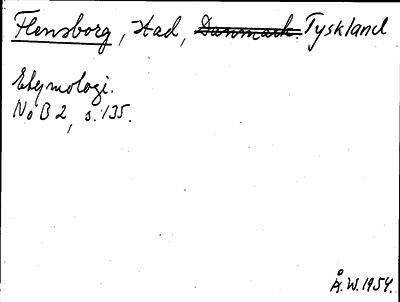 Flensborg, stad, Danmark. Tyskland
Etymologi.
NoB 2, s. 135.
Å.W. 1954.